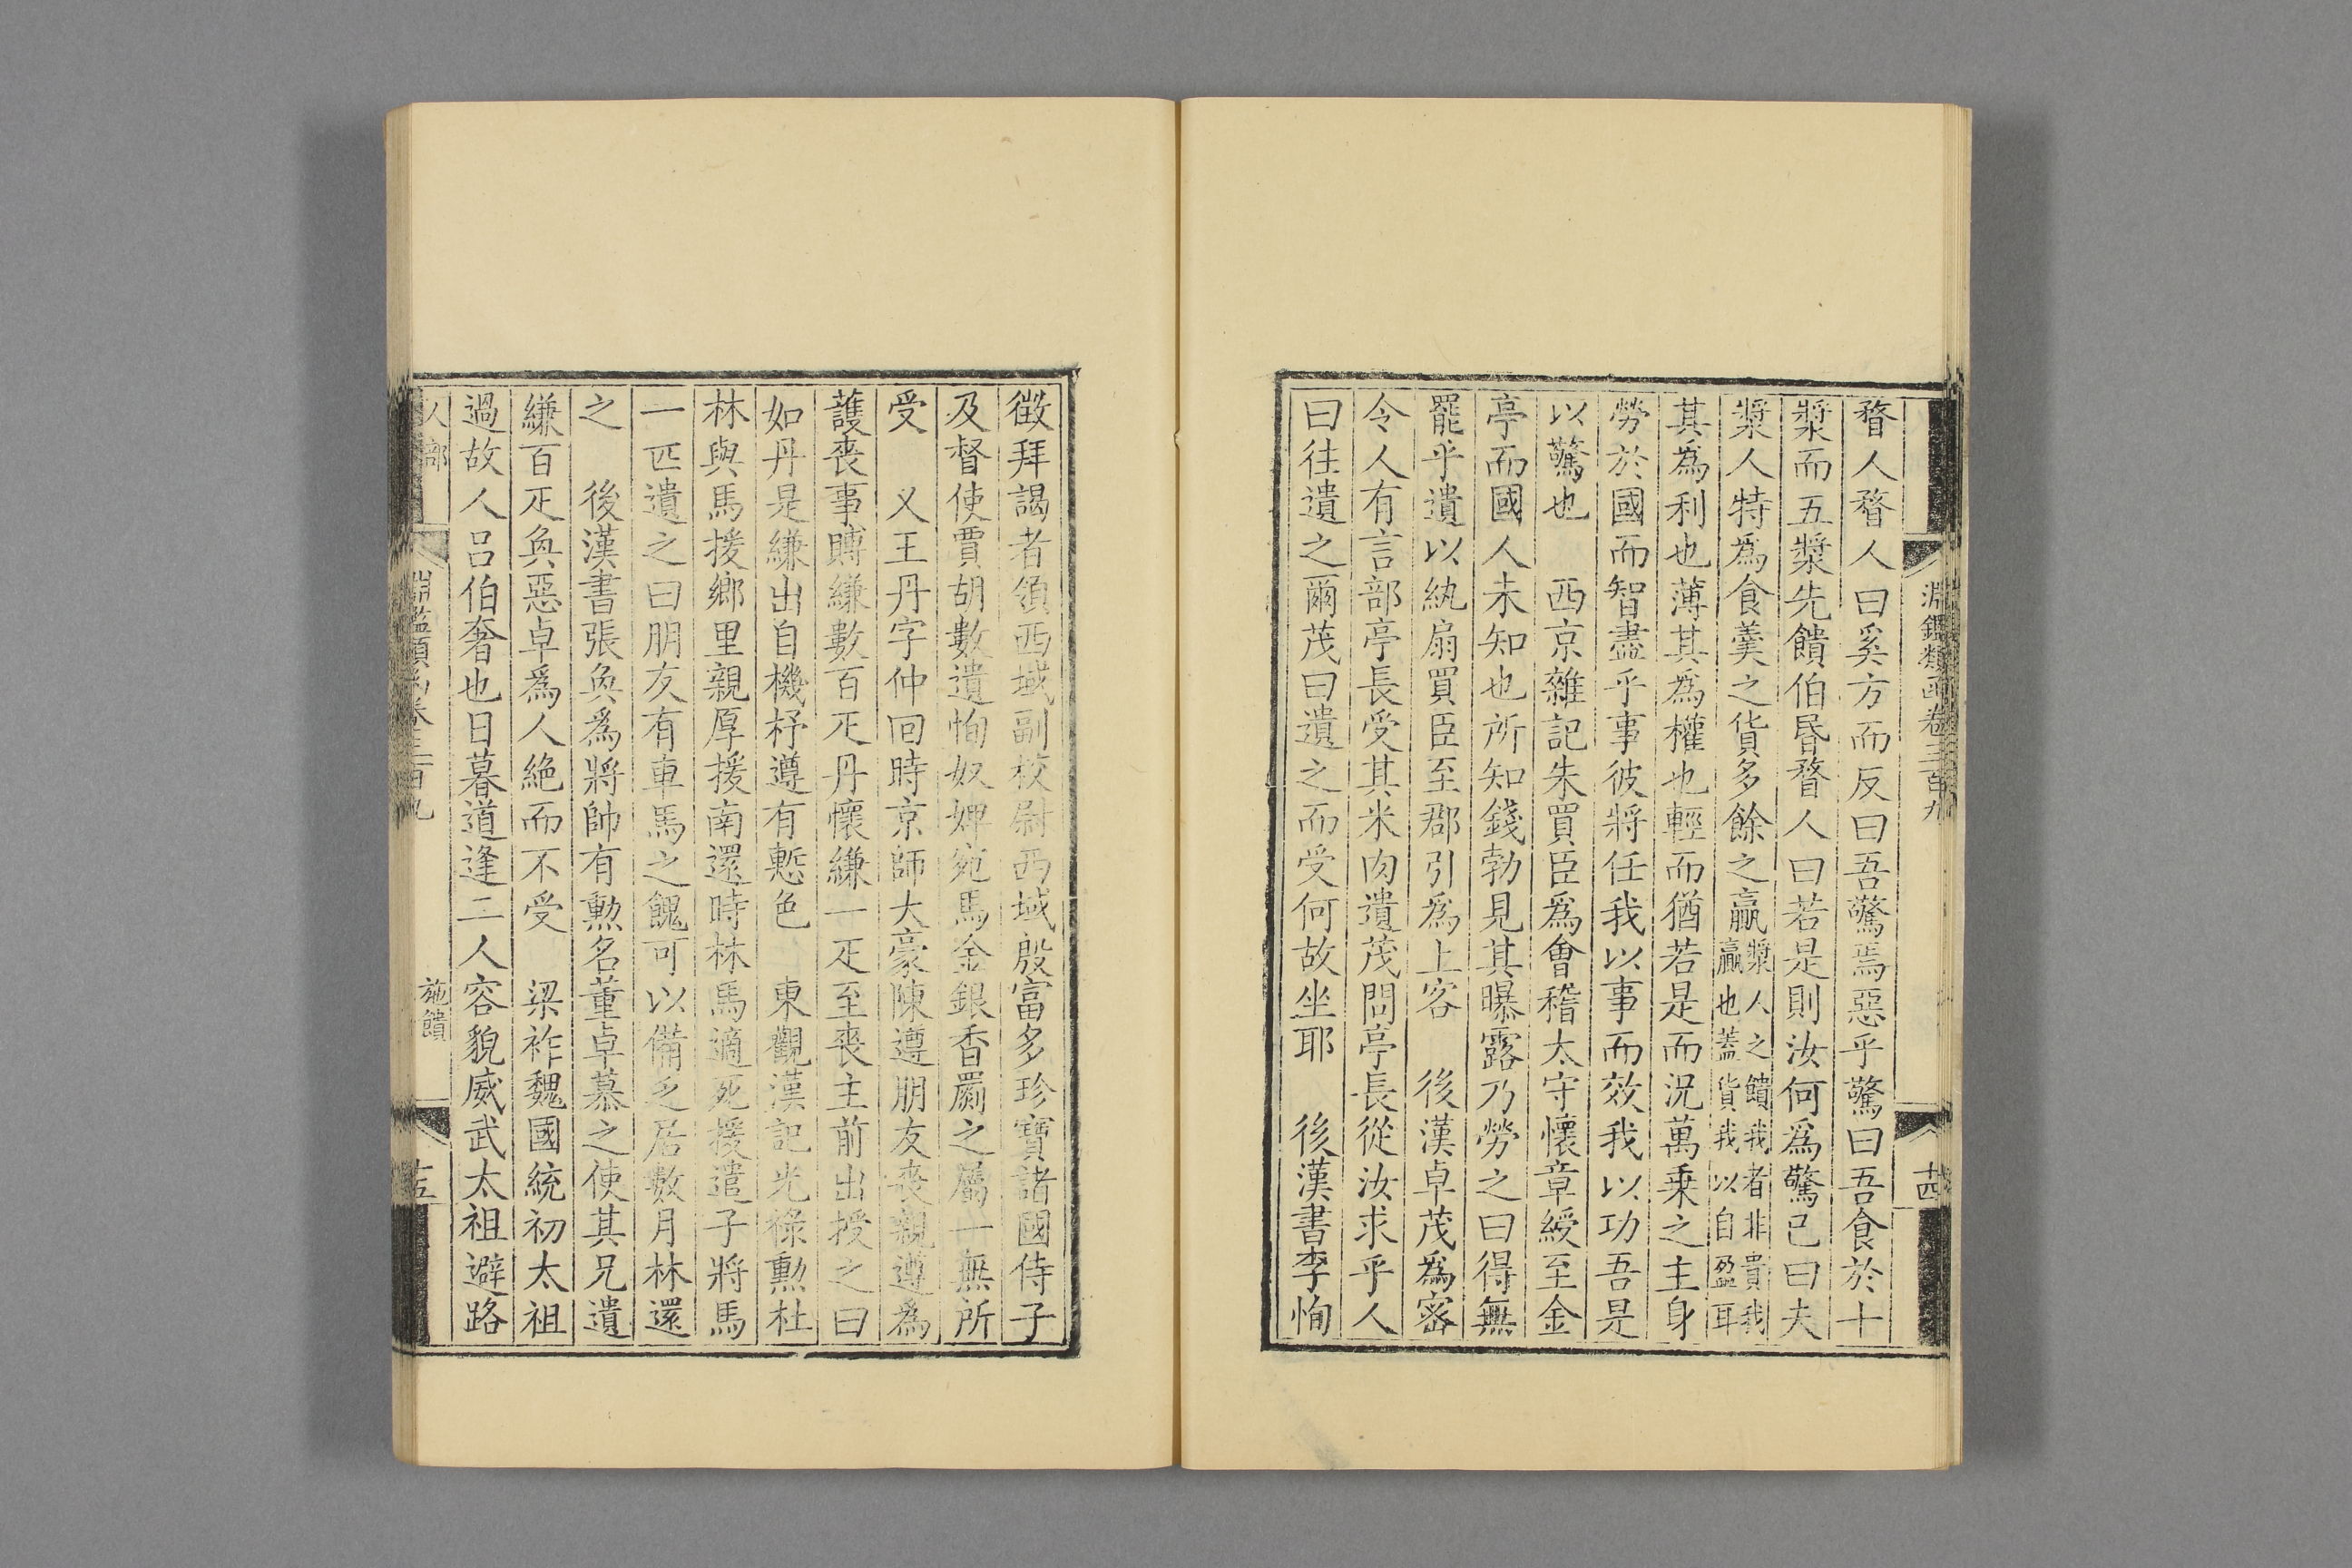 淵鑑類函卷三百九
十四
瞀人瞀人曰奚方而反曰吾驚焉惡乎驚曰吾食於十
漿而五漿先饋伯昏瞀人曰若是則汝何為驚已曰夫
漿人特爲食羹之貨多餘之贏漿人之饋我者非貴我贏也蓋貨我以自盈耳
其爲利也薄其爲權也輕而猶若是而況萬乗之主身
勞於國而智盡乎事彼將任我以事而效我以功吾是
以驚也　西京雜記朱買臣爲會稽太守懷章綬至金
亭而國人未知也所知錢勃見其曝露乃勞之曰得無
罷乎遺以紈扇買臣至郡引爲上客　後漢卓茂爲密
令人有言部亭長受其米肉遺茂問亭長從汝求乎人
曰往遺之爾茂曰遺之而受何故坐耶　後漢書李恂
徴拜謁者領西域副校尉西域殷富多珍寶諸國侍子
及督使賈胡數遺恂奴婢宛馬金銀香罽之屬一無所
受　又王丹字仲回時京師大豪陳遵朋友喪親遵為
護喪事賻縑數百疋丹懷縑一疋至喪主前出授之曰
如丹是縑出自機杼遵有慙色　東觀漢記光祿勲杜
林與馬援鄉里親厚援南還時林馬適死援遣子將馬
一匹遺之曰朋友有車馬之餽可以備乏居數月林還
之　後漢書張奐爲將帥有勲名董卓慕之使其兄遺
縑百疋奐惡卓爲人絶而不受　梁祚魏國統初太祖
過故人呂伯奢也日暮道逢二人容貌威武太祖避路
人部
淵鑑類函卷三百九
施饋
十五